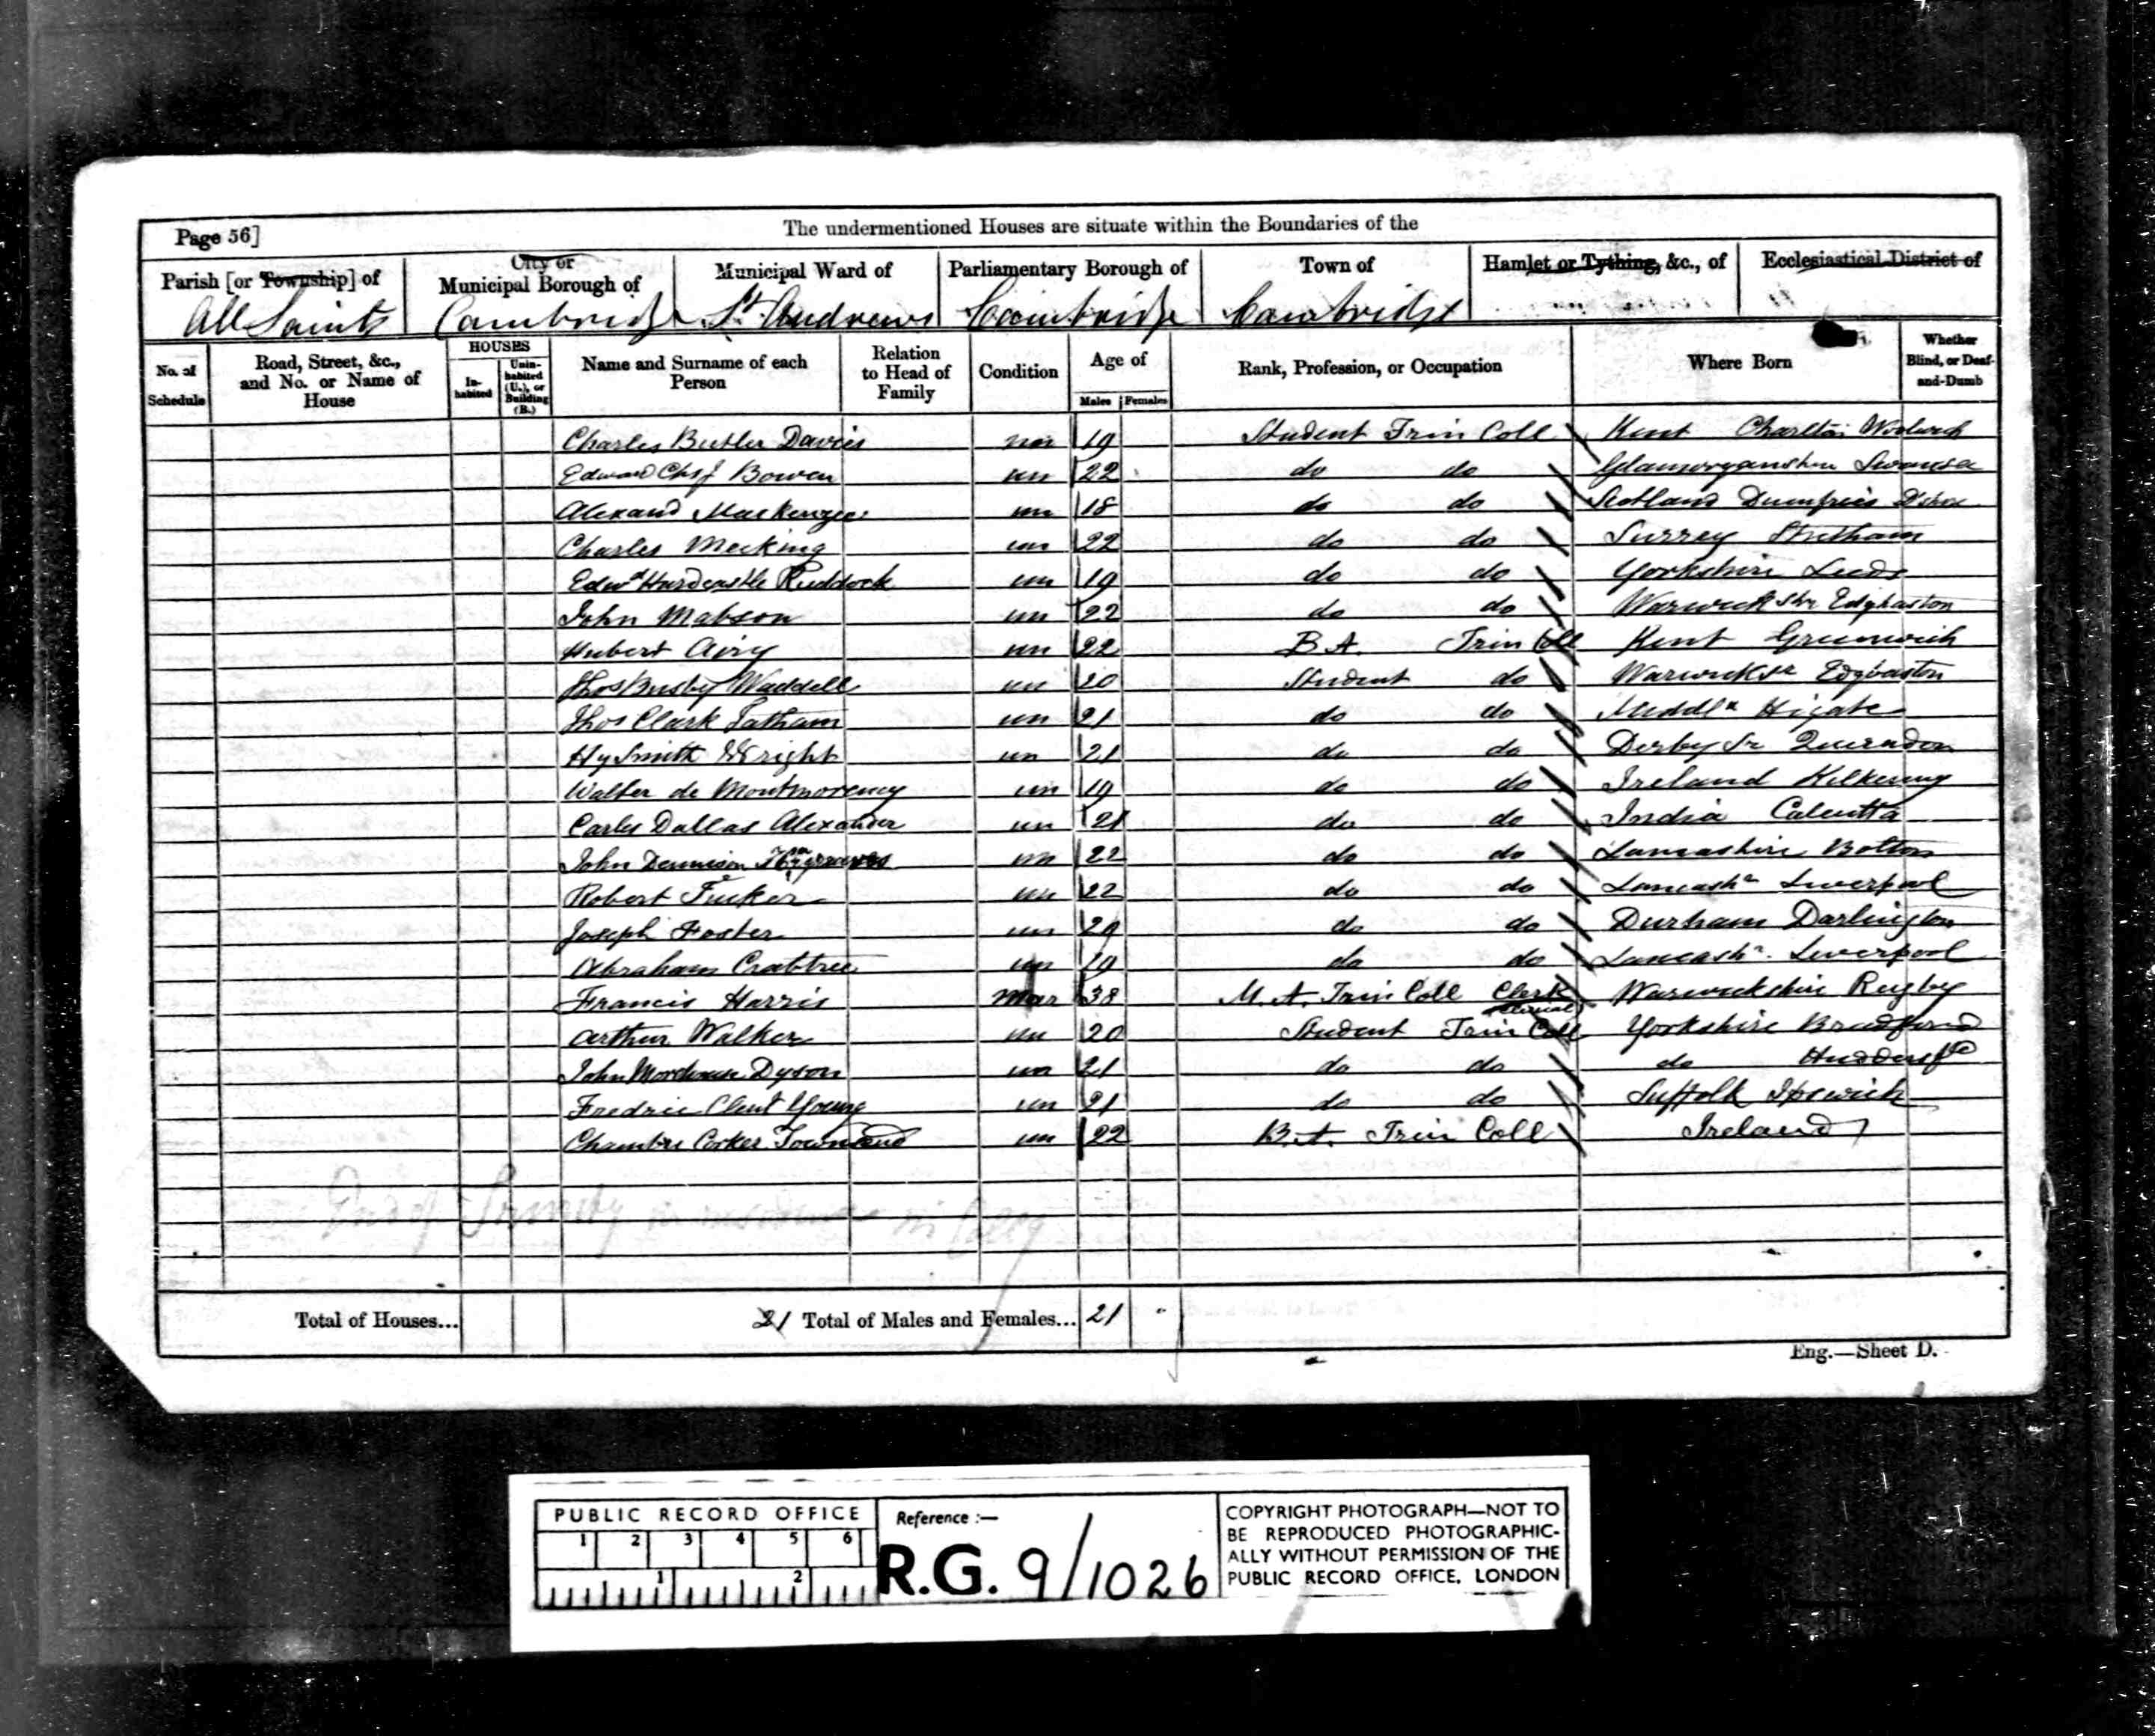 Page 56]
The undermentioned Houses are situate within the Boundaries of the
Parish [or Township] of City or Municipal Borough of Municipal Ward of Parliamentary Borough of Town of Hamlet or Tything, &c., of Ecclesiastical District of
All Saints Cambridge St. Andrews Cambridge Cambridge
No. of Schedule Road, Street, &c., and No. or Name of House HOUSES Inhabited Uninhabited (U.), or Building (B.) Name and Surname of each Person Relation to Head of Family Condition Age of Males Females Rank, Profession, or Occupation Where Born Whether Blind, or Deaf-and-Dumb
Charles Butler Davies 19 Student Trin Coll Kent Charlton Woolwich
Edward Chs J Bowen un 22 do do Glamorganshire Swansea
Alexand Mackenzie un 18 do do Scotland Dumfries
Charles Meeking un 22 do do Surrey
Edwd Hardcastle Ruddock un 19 do do Yorkshire Leeds
John Mabson un 22 do do Warwickshr Edgbaston
Hubert Airy un 22 B A. Trin Coll Kent Greenwich
Thos Busby Waddell un 20 Student do Warwicksr Edgbaston
Thos Clark Tatham un 21 do do Middlx Higate
Hy Smith Wright un 21 do do Derby Sr Quarndon
Walter de Montmorency un 19 do do Ireland Kilkenny
Carles Dallas Alexander un 21 do do India Calcutta
John Dennison un 22 do do Lancashire Bolton
Robert Tucker un 22 do do Lancashr Liverpool
Joseph Foster un do do Durham Darlington
Abraham Crabtree un 19 do do Lancashr. Liverpool
Francis Harris Mar 38 M. A. Trin Coll Clerk Warwickshire Rugby
Arthur Walker un 20 Student Trin Coll Yorkshire Bradford
John Dyson un 21 do do do Huddersfd
Fredric Clent Young un 21 do do Suffolk Ipswich
Chambre Corker Townsend un 22 B. A. Trin Coll Ireland
End of in in Colleg
Total of Houses... 21 Total of Males and Females... 21
Eng.—Sheet D.
PUBLIC RECORD OFFICE
1 2 3 4 5 6
1 2
Reference :—
R.G. 9/1026
COPYRIGHT PHOTOGRAPH—NOT TO
BE REPRODUCED PHOTOGRAPHIC-
ALLY WITHOUT PERMISSION OF THE
PUBLIC RECORD OFFICE, LONDON